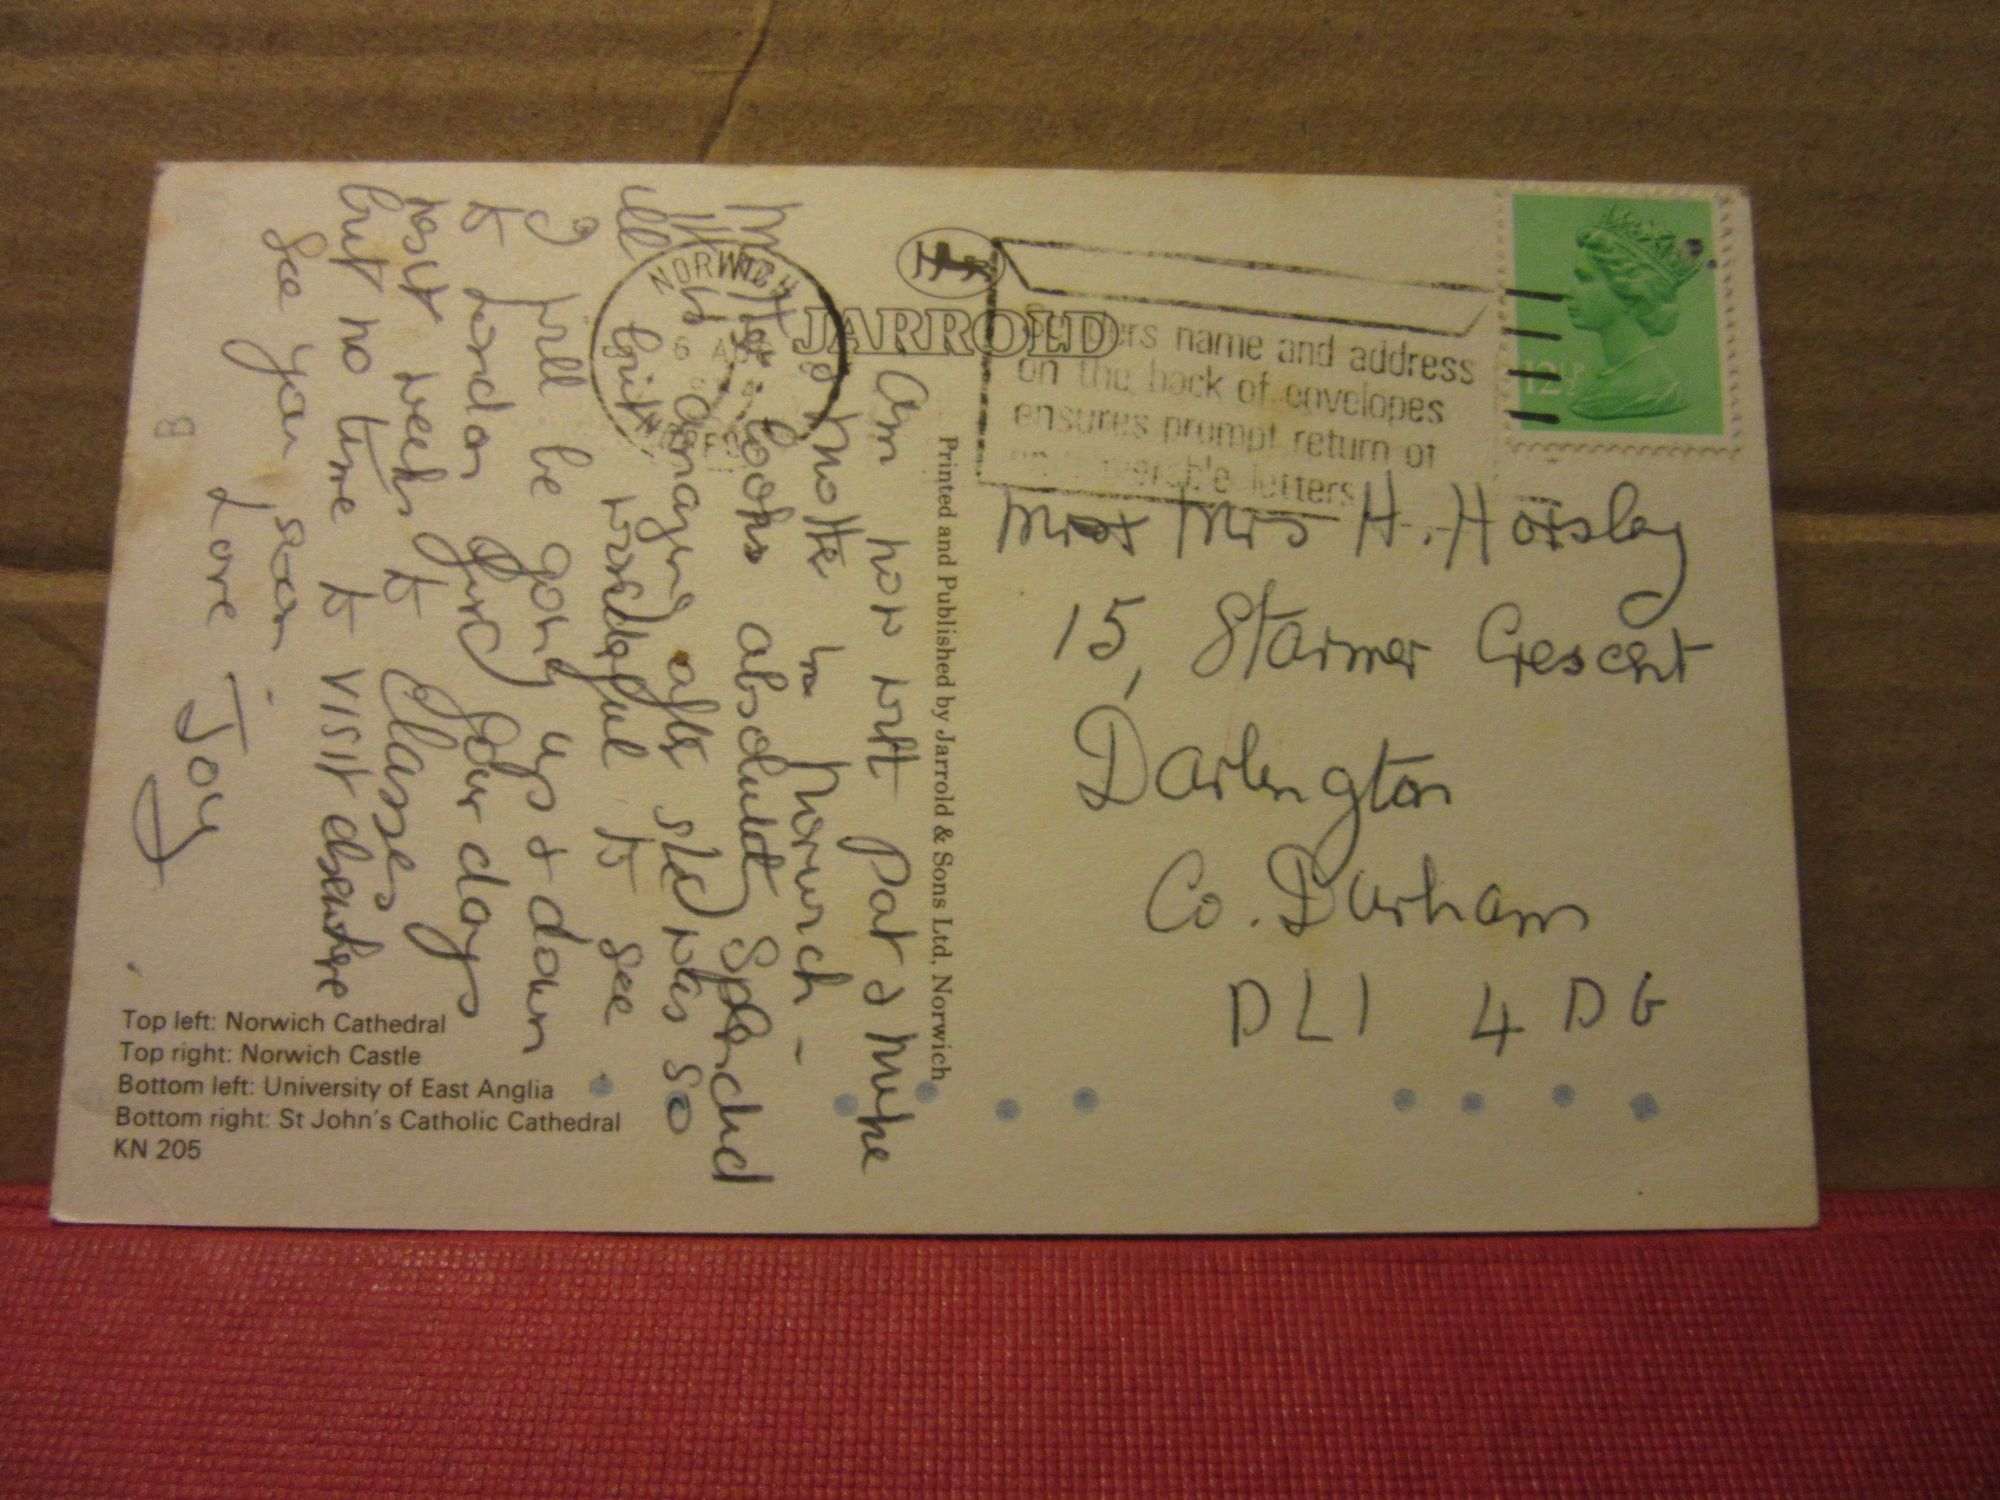 Am now with Pat & Mike
& Mottie in Norwich -
Mottie looks absolutely splendid
It is amazing after she was so
ill but wonderful to see
I will be going up & down
to London first four days
next week to classes
but no time to visit elsewhere
See you soon.
Love Joy
Top left: Norwich Cathedral
Top right: Norwich Castle
Bottom left: University of East Anglia
Bottom right: St John's Catholic Cathedral
KN 205
JARROLD
Printed and Published by Jarrold & Sons Ltd, Norwich
NORWICH
6
NORFOLK
Senders name and address
on the back of envelopes
ensures prompt return of
letters
12½P
Mr & Mrs H. Horsley
15, Starmer Crescent
Darlington
Co. Durham
DL1 4DG
B